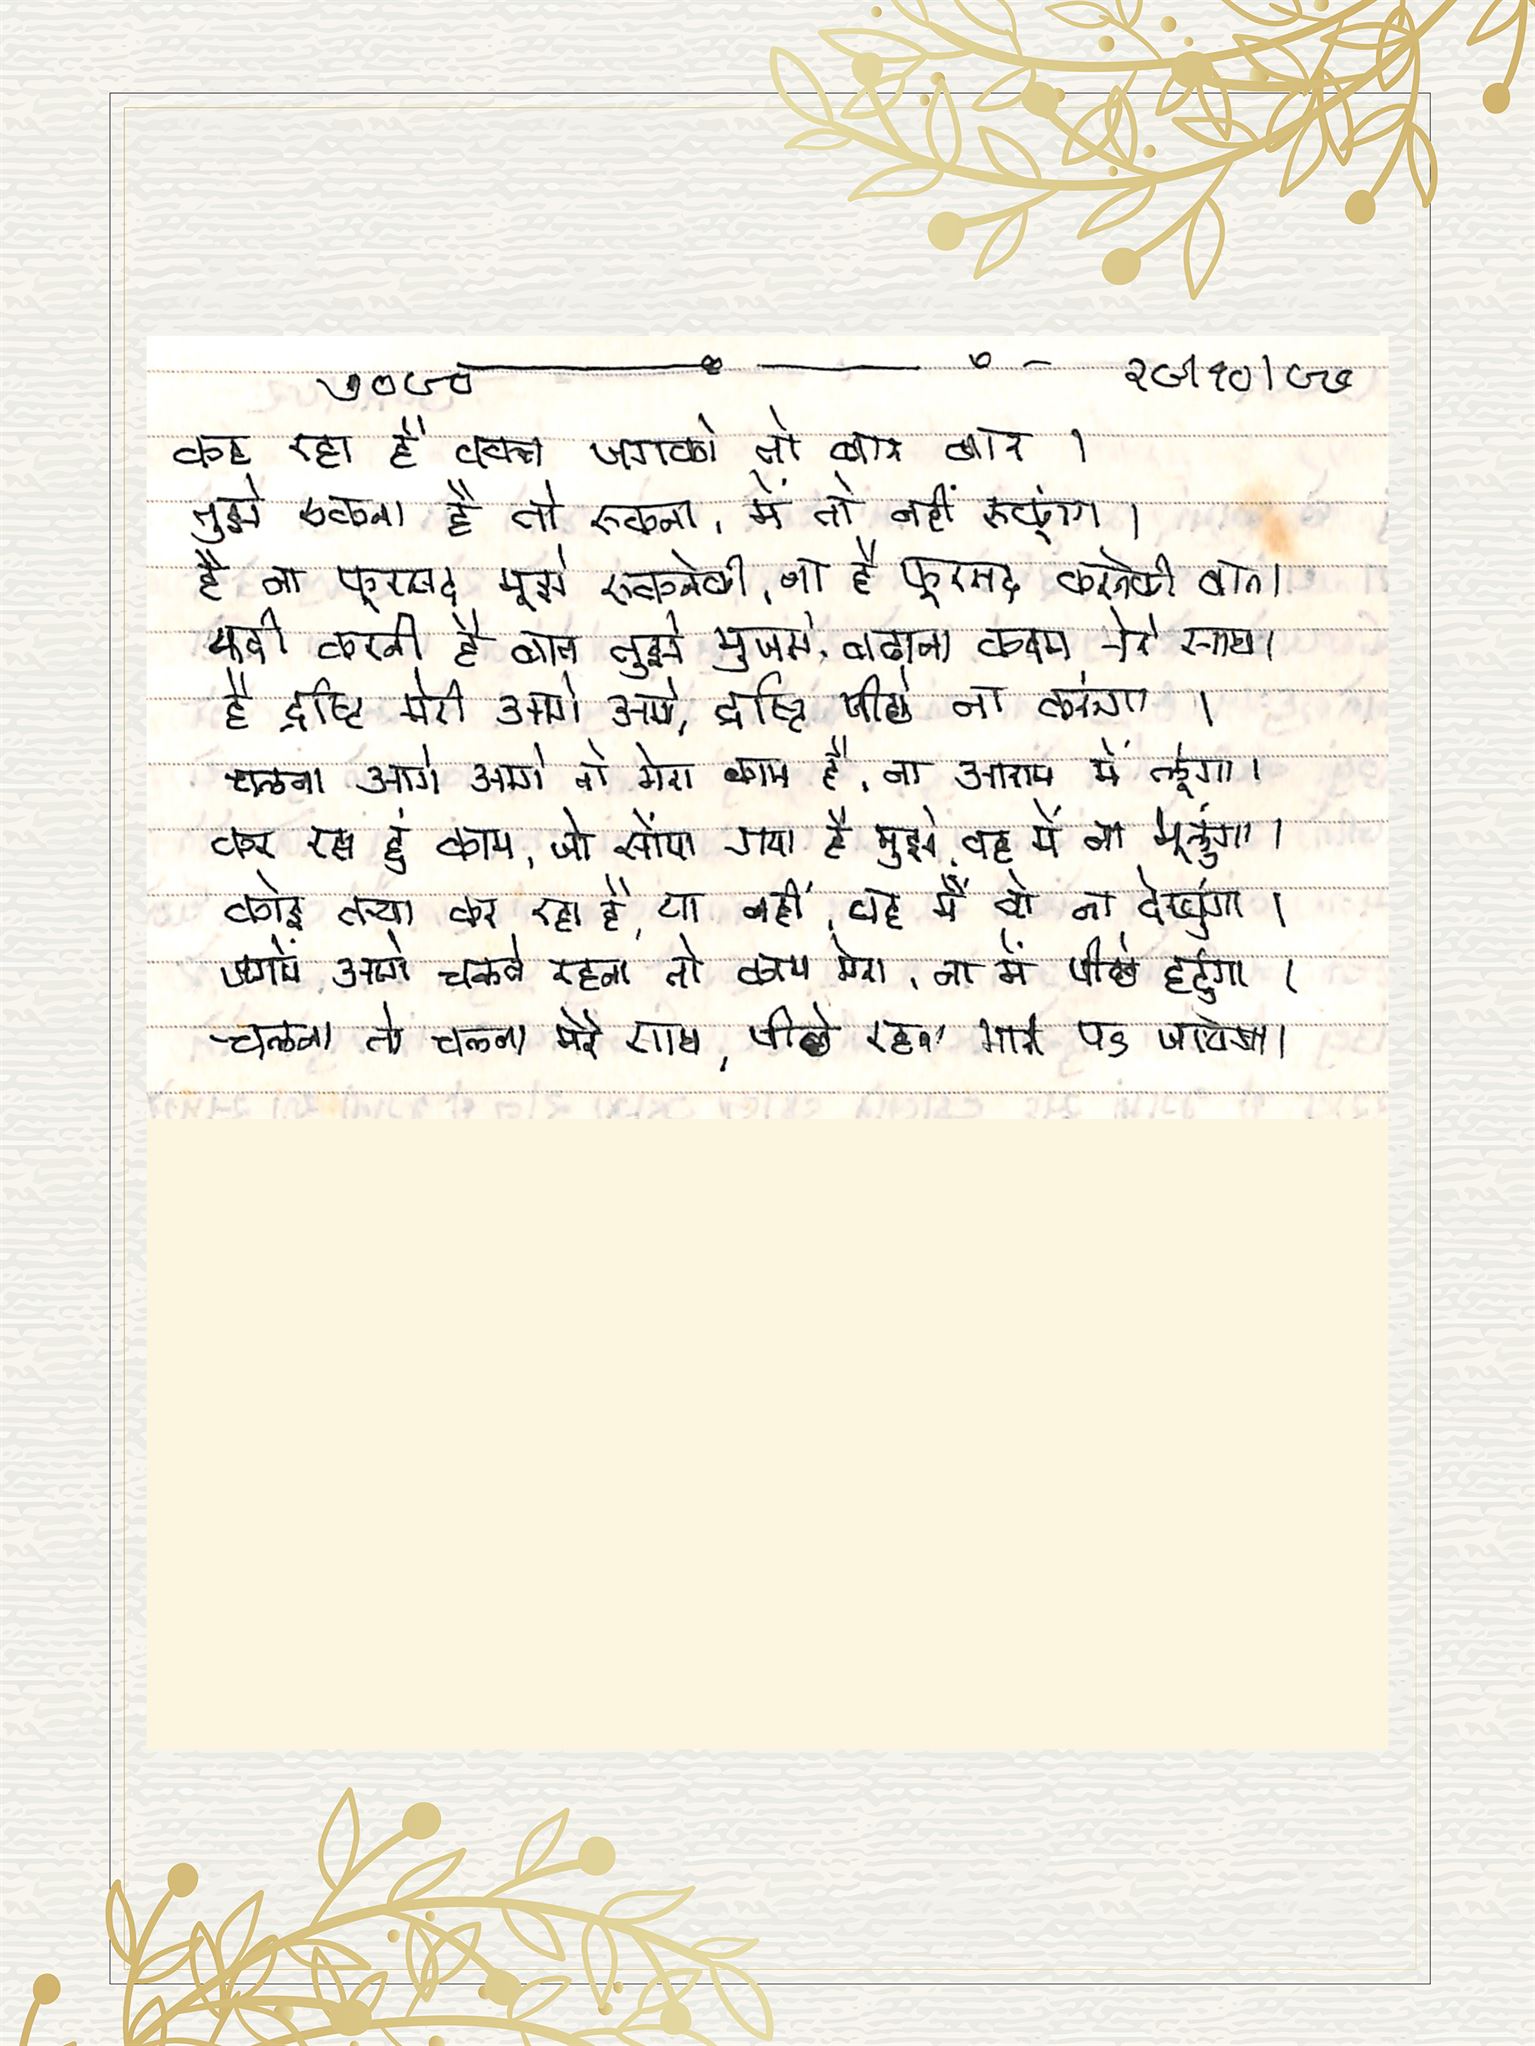 ७०८० २८/१०/८७
कह रहा है वक्त जगको तो बार बार ।
तुझे रुकना है तो रुकना, में तो नहीं रूकूंगा ।
है ना फूरसद मूझे रुकनेकी, ना है फूरसद करनेकी बात।
यदी करनी है बात तुझे मुजसे, बढाना कदम मेरे साथ।
है द्रष्टि मेरी आगे आगे, द्रष्टि पीछे ना करूंगा ।
चलना आगे आगे तो मेरा काम है, ना आराम में लूंगा।
कर रहा हुं काम, जो सोंपा गया है मुझे, वह में ना भूलुंगा।
कोइ क्या कर रहा है, या नहीं, वह मैं तो ना देखुंगा ।
जगमें आगे चलते रहना तो काम मेरा, ना में पीछे हटुंगा ।
चलना तो चलना मेरे साथ, पीछे रहना भारी पड जायेगा।